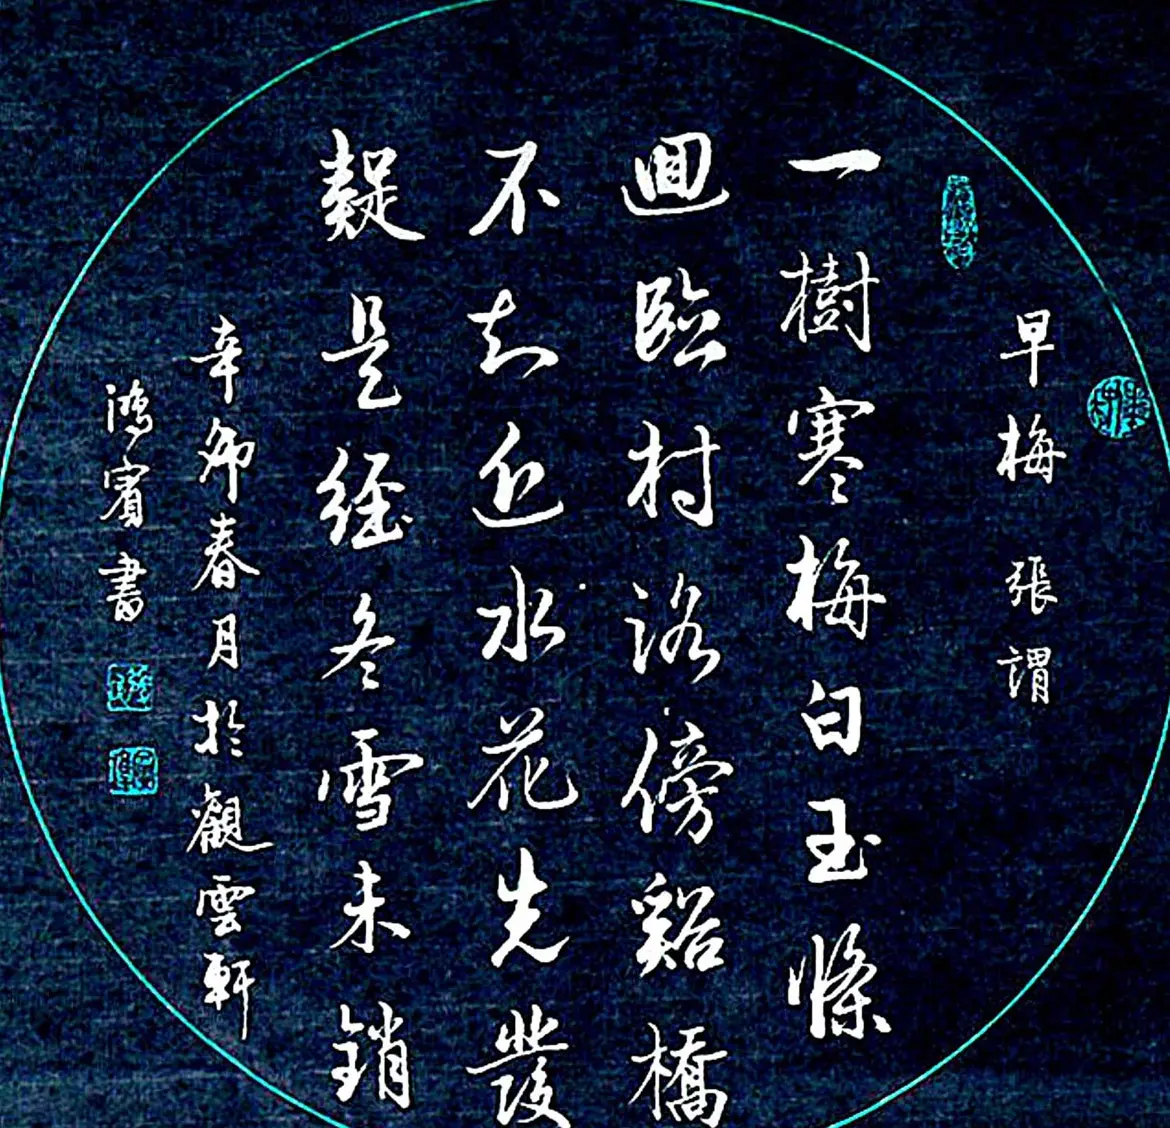 早梅 張謂
一樹寒梅白玉條
迴臨村洛傍谿橋
不知近水花先發
疑是經冬雪未銷
辛卯春月於觀雲軒
鴻賓書